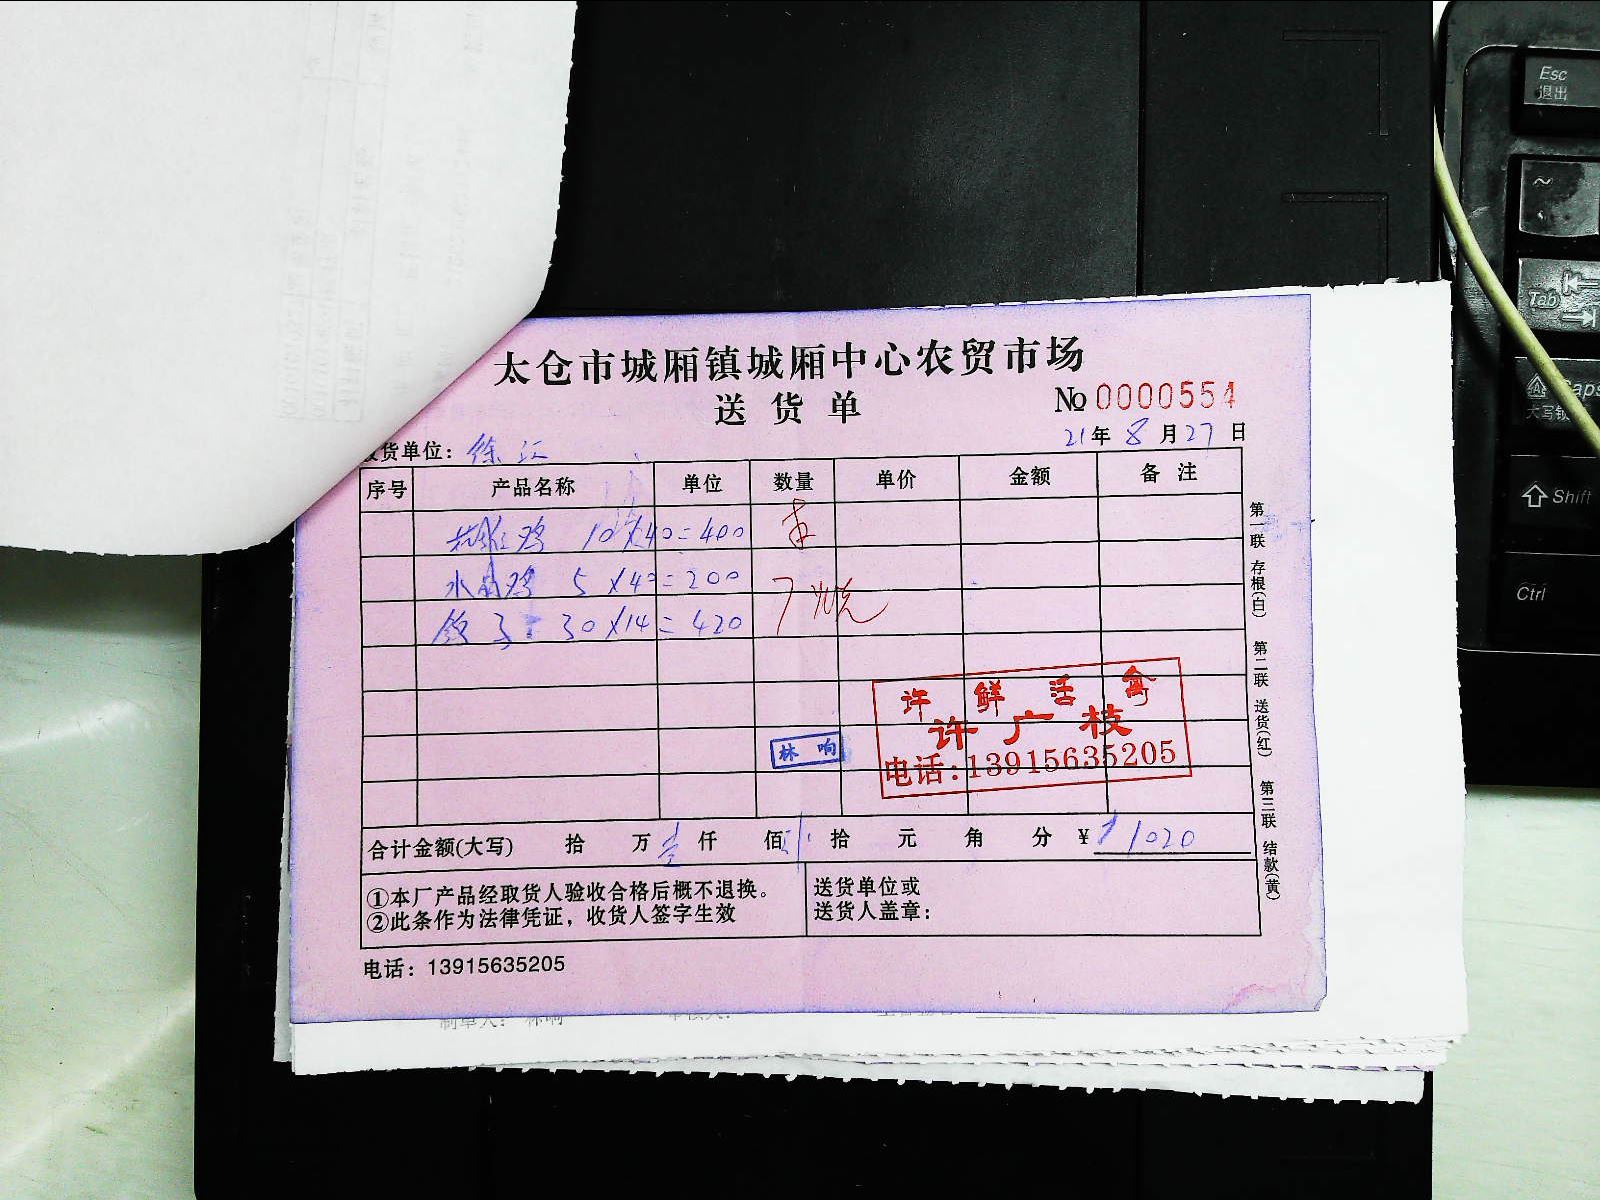 太仓市城厢镇城厢中心农贸市场
送货单
№0000554
货单位: 徐
21年8月27日
序号 产品名称 单位 数量 单价 金额 备注
鸡 10×40=400
水 鸡 5×40=200
30×14=420
许鲜活禽
许广枝
电话:13915635205
林响
合计金额(大写) 拾 万 壹 仟 佰 拾 元 角 分 ¥ 1020
①本厂产品经取货人验收合格后概不退换。
②此条作为法律凭证,收货人签字生效
送货单位或
送货人盖章:
电话: 13915635205
第一联 存根(白)
第二联 送货(红)
第三联 结款(黄)
制单人: 林响
Esc
退出
~
Tab
Caps
大写锁
Shift
Ctrl